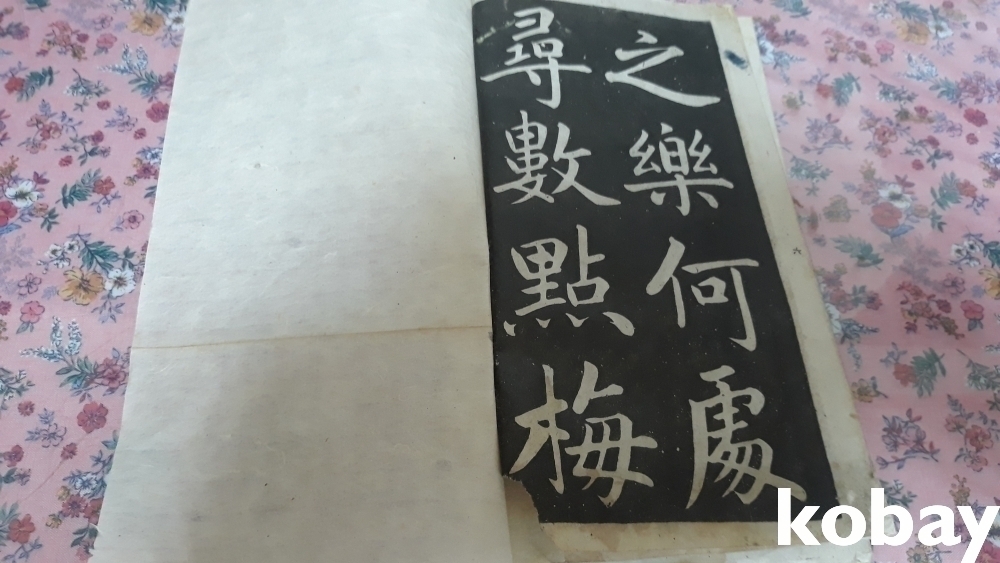 之樂何處
尋數點梅
kobay